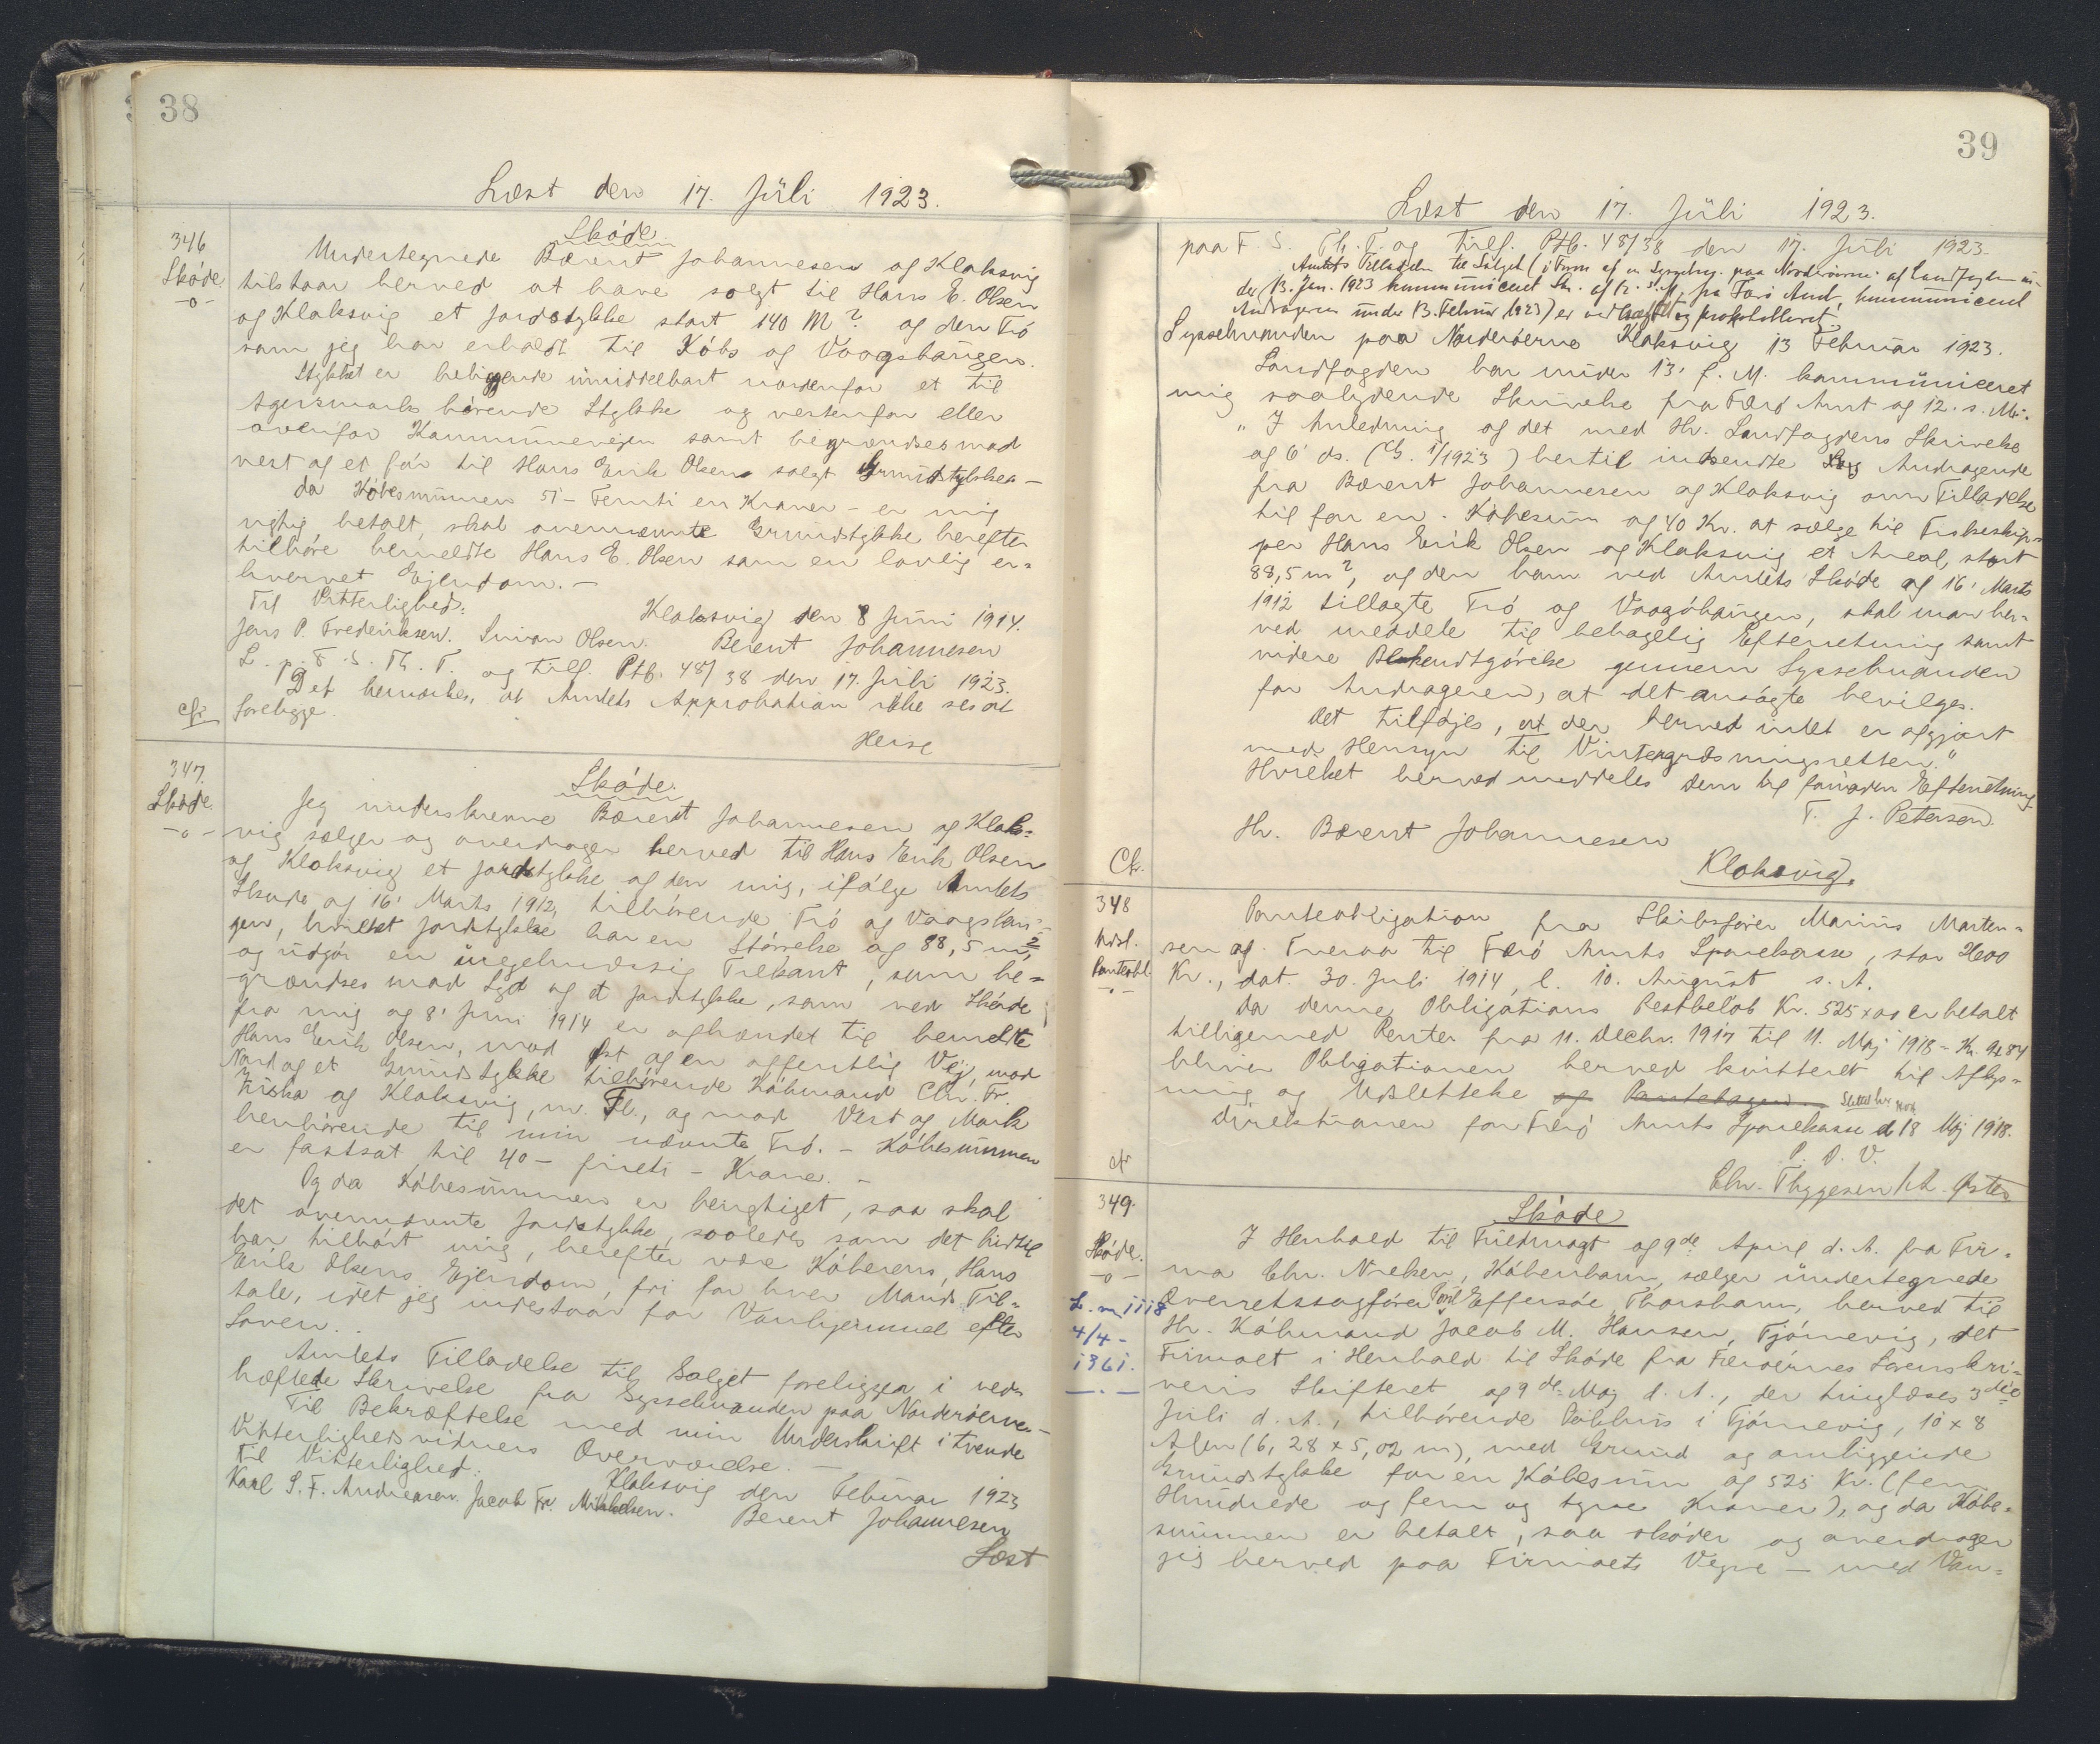 38
Læst den 17. Juli 1923.
346
Skøde
-o-
Skøde
Undertegnede Bærent Johannesen af Klaksvig
tilstaar herved at have solgt til Hans E. Olsen
af Klaksvig et Jordstykke stort 140 M² af den Trø
som jeg har erholdt til Købs af Vaagshaugen.
Stykket er beliggende umiddelbart nordenfor et til
Agersmark hørende Stykke og vestenfor eller
ovenfor Kommunevejen samt begrændses mod
vest af et før til Hans Erik Olsen solgt Grundstykke. —
da Købesummen 51 - Femti en Kroner - er mig
rigtig betalt, skal ovennævnte Grundstykke herefter
tilhøre bemeldte Hans E. Olsen som en lovlig er=
hvervet Ejendom. —
Klaksvig den 8 Juni 1914.
Til Vitterlighed:
Jens P. Frederiksen. Simon Olsen. Berent Johannesen
L. p. F. S. Th. T. og tilf. Ptb. 48/38 den 17. Juli 1923.
Det bemærkes, at Amtets Approbation ikke ses at
cfr foreligge.
Heise
347.
Skøde.
-o-
Skøde.
Jeg underskrevne Bærent Johannesen af Klaks=
vig sælger og overdrager herved til Hans Erik Olsen
af Klaksvig et Jordstykke af den mig, ifølge Amtets
Skøde af 16' Marts 1912, tilhørende Trø af Vaagshau=
gen, hvilket Jordstykke har en Størrelse af 88,5 m²,
og udgør en uregelmæssig Trekant, som be=
grændses mod Syd af et Jordstykke, som ved Skøde
fra mig af 8' Juni 1914 er afhændet til bemeldte
Hans Erik Olsen, mod Øst af en offentlig Vej, mod
Nord af et Grundstykke tilhørende Købmand Chr. Fr.
Kiska af Klaksvig, m. Fl., og mod Vest af Mark
henhørende til min nævnte Trø. - Købesummen
er fastsat til 40 - fireti - Krone. -
Og da Købesummen er berigtiget, saa skal
det ovennævnte Jordstykke, saaledes som det hidtil
har tilhørt mig, herefter være Køberens, Hans
Erik Olsens Ejendom, fri for hver Mands Til=
tale, idet jeg indestaar for Vanhjemmel efter
Loven. .
Amtets Tilladelse til Salget foreligger i ved=
hæftede Skrivelse fra Sysselmanden paa Norderøerne. —
Til Bekræftelse med min Underskrift i tvende
Vitterlighedsvidners Overværelse. —
Klaksvig den Februar 1923
Til Vitterlighed:
Karl S. F. Andreasen. Jacob Fr. Mikkelsen. Berent Johannesen
Læst
39
Læst den 17. Juli 1923.
paa F. S. Th. T. og tilf. Ptb. 48/38 den 17. Juli 1923.
Amtets Tilladelse til Salget (i Form af en Skrivelse paa Norderøerne af Landfogden un-
der 13. Jan. 1923 kommuniceret Skr. af 12. s. M. fra Færø Amt, kommuniceret
Andrageren under 13. Februar 1923) er vedhæftet og protokolleret.
Sysselmanden paa Norderøerne Klaksvig 13 Februar 1923.
Landfogden har under 13' f. M. kommuniceret
mig saalydende Skrivelse fra Færø Amt af 12. s. M.:
"I Anledning af det med Hr. Landfogdens Skrivelse
af 6' ds. (G. 1/1923) hertil indsendte Andragende
fra Bærent Johannesen af Klaksvig om Tilladelse
til for en Købesum af 40 Kr. at sælge til Fiskeskip=
per Hans Erik Olsen af Klaksvig et Areal, stort
88,5 m², af den ham ved Amtets Skøde af 16' Marts
1912 tillagte Trø af Vaagshaugen, skal man her=
ved meddele til behagelig Efterretning samt
videre Bekendtgørelse gennem Sysselmanden
for Andrageren, at det ansøgte bevilges.
Det tilføjes, at der herved intet er afgjort
med Hensyn til Vintergræsningsretten."
Hvilket herved meddeles Dem til fornøden Efterretning
F. J. Petersen.
Hr. Bærent Johannesen
Cfr. Klaksvig.
348
Udsl.
Panteobl.
-o-
Panteobligation fra Skibsfører Marius Marten=
sen af Tveraa til Færø Amts Sparekasse, stor
Kr., dat. 30. Juli 1914, l. 10. August s. A.
Da denne Obligations Restbeløb Kr. 525 x 00 er betalt
tilligemed Renter fra 11. Decbr. 1917 til 11. Maj 1918 - Kr. 9x84
bliver Obligationen herved kvitteret til Aflys=
ning og Udslettelse af Pantebogen.
Direktionen for Færø Amts Sparekasse d 18 Maj 1918.
P. D. V.
cfr Chr. Thygesen /A. Øster
349.
Skøde.
-o-
L. nr 1118
4/4 -
1361.
Skøde
I Henhold til Fuldmagt af 9de April d. A. fra Fir=
ma Chr. Nielsen, København, sælger undertegnede
Overretssagfører Poul Effersøe, Thorshavn, herved til
Hr. Købmand Jacob M. Hansen, Tjørnevig, det
Firmaet i Henhold til Skøde fra Færøernes Sorenskri=
veris Skifteret af 9de Maj d. A., der tinglæses 3die
Juli d. A., tilhørende Pakhus i Tjørnevig, 10 x 8
Alen (6,28 x 5,02 m), med Grund og omliggende
Grundstykke for en Købesum af 525 Kr. (fem
Hundrede og fem og tyve Kroner), og da Købe=
summen er betalt, saa skøder og overdrager
jeg herved paa Firmaets Vegne — med Van=